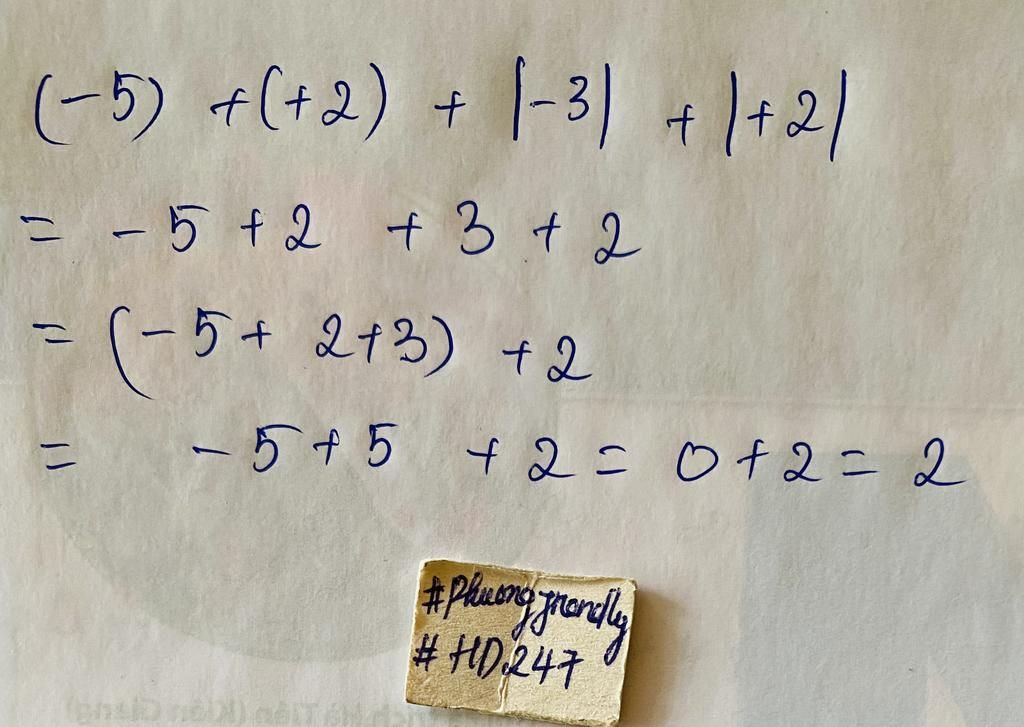 (-5) + (+2) + |-3| + |+2|
= -5 + 2 + 3 + 2
= (-5 + 2+3) + 2
= -5 + 5 + 2 = 0 + 2 = 2
#Phuong
#HD247